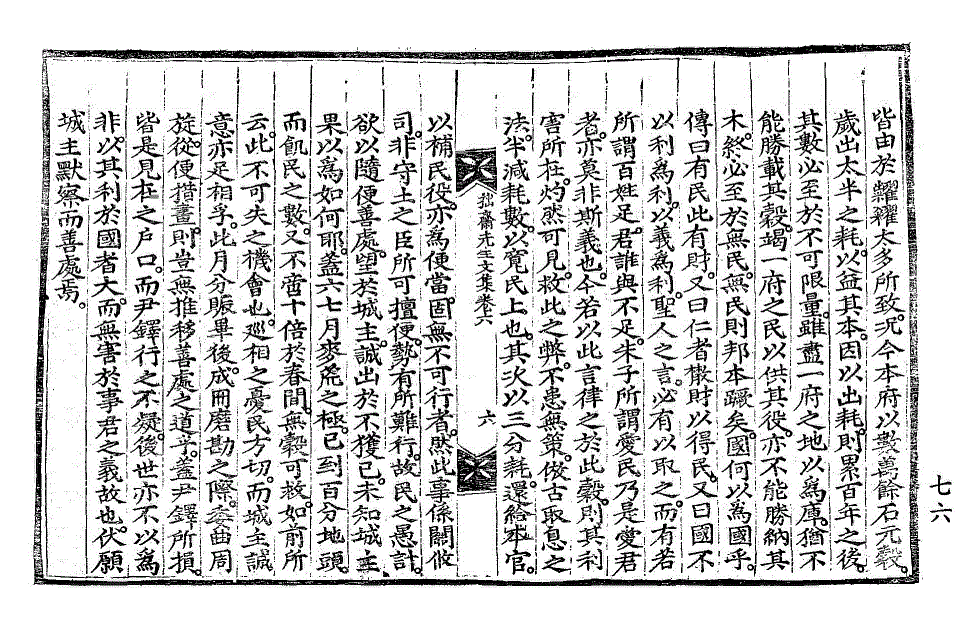 皆由於糶糴太多所致。况今本府以數萬餘石元穀。
歲出太半之耗。以益其本。因以出耗。則累百年之後。
其數必至於不可限量。雖盡一府之地以爲庫。猶不
能勝載其穀。竭一府之民以供其役。亦不能勝納其
木。終必至於無民。無民則邦本蹶矣。國何以爲國乎。
傳曰有民此有財。又曰仁者散財以得民。又曰國不
以利爲利。以義爲利。聖人之言。必有以取之。而有若
所謂百姓足。君誰與不足。朱子所謂愛民乃是愛君
者。亦莫非斯義也。今若以此言律之於此穀。則其利
害所在。灼然可見。救此之弊。不患無策。倣古取息之
法。半減耗數。以寬民上也。其次以三分耗。還給本官。
拙齋先生文集卷六
六
以補民役。亦爲便當。固無不可行者。然此事係關攸
司。非守土之臣所可擅便。勢有所難行。故民之愚計。
欲以隨便善處。望於城主。誠出於不獲已。未知城主
果以爲如何耶。蓋六七月麥荒之極。已到百分地頭。
而飢民之數。又不啻十倍於春間。無穀可救。如前所
云。此不可失之機會也。巡相之憂民方切。而城主誠
意亦足相孚。此月分賑畢後。成冊磨勘之際。委曲周
旋。從便措畫。則豈無推移善處之道乎。蓋尹鐸所損。
皆是見在之戶口。而尹鐸行之不疑。後世亦不以爲
非。以其利於國者大。而無害於事君之義故也。伏願
城主默察而善處焉。
七六